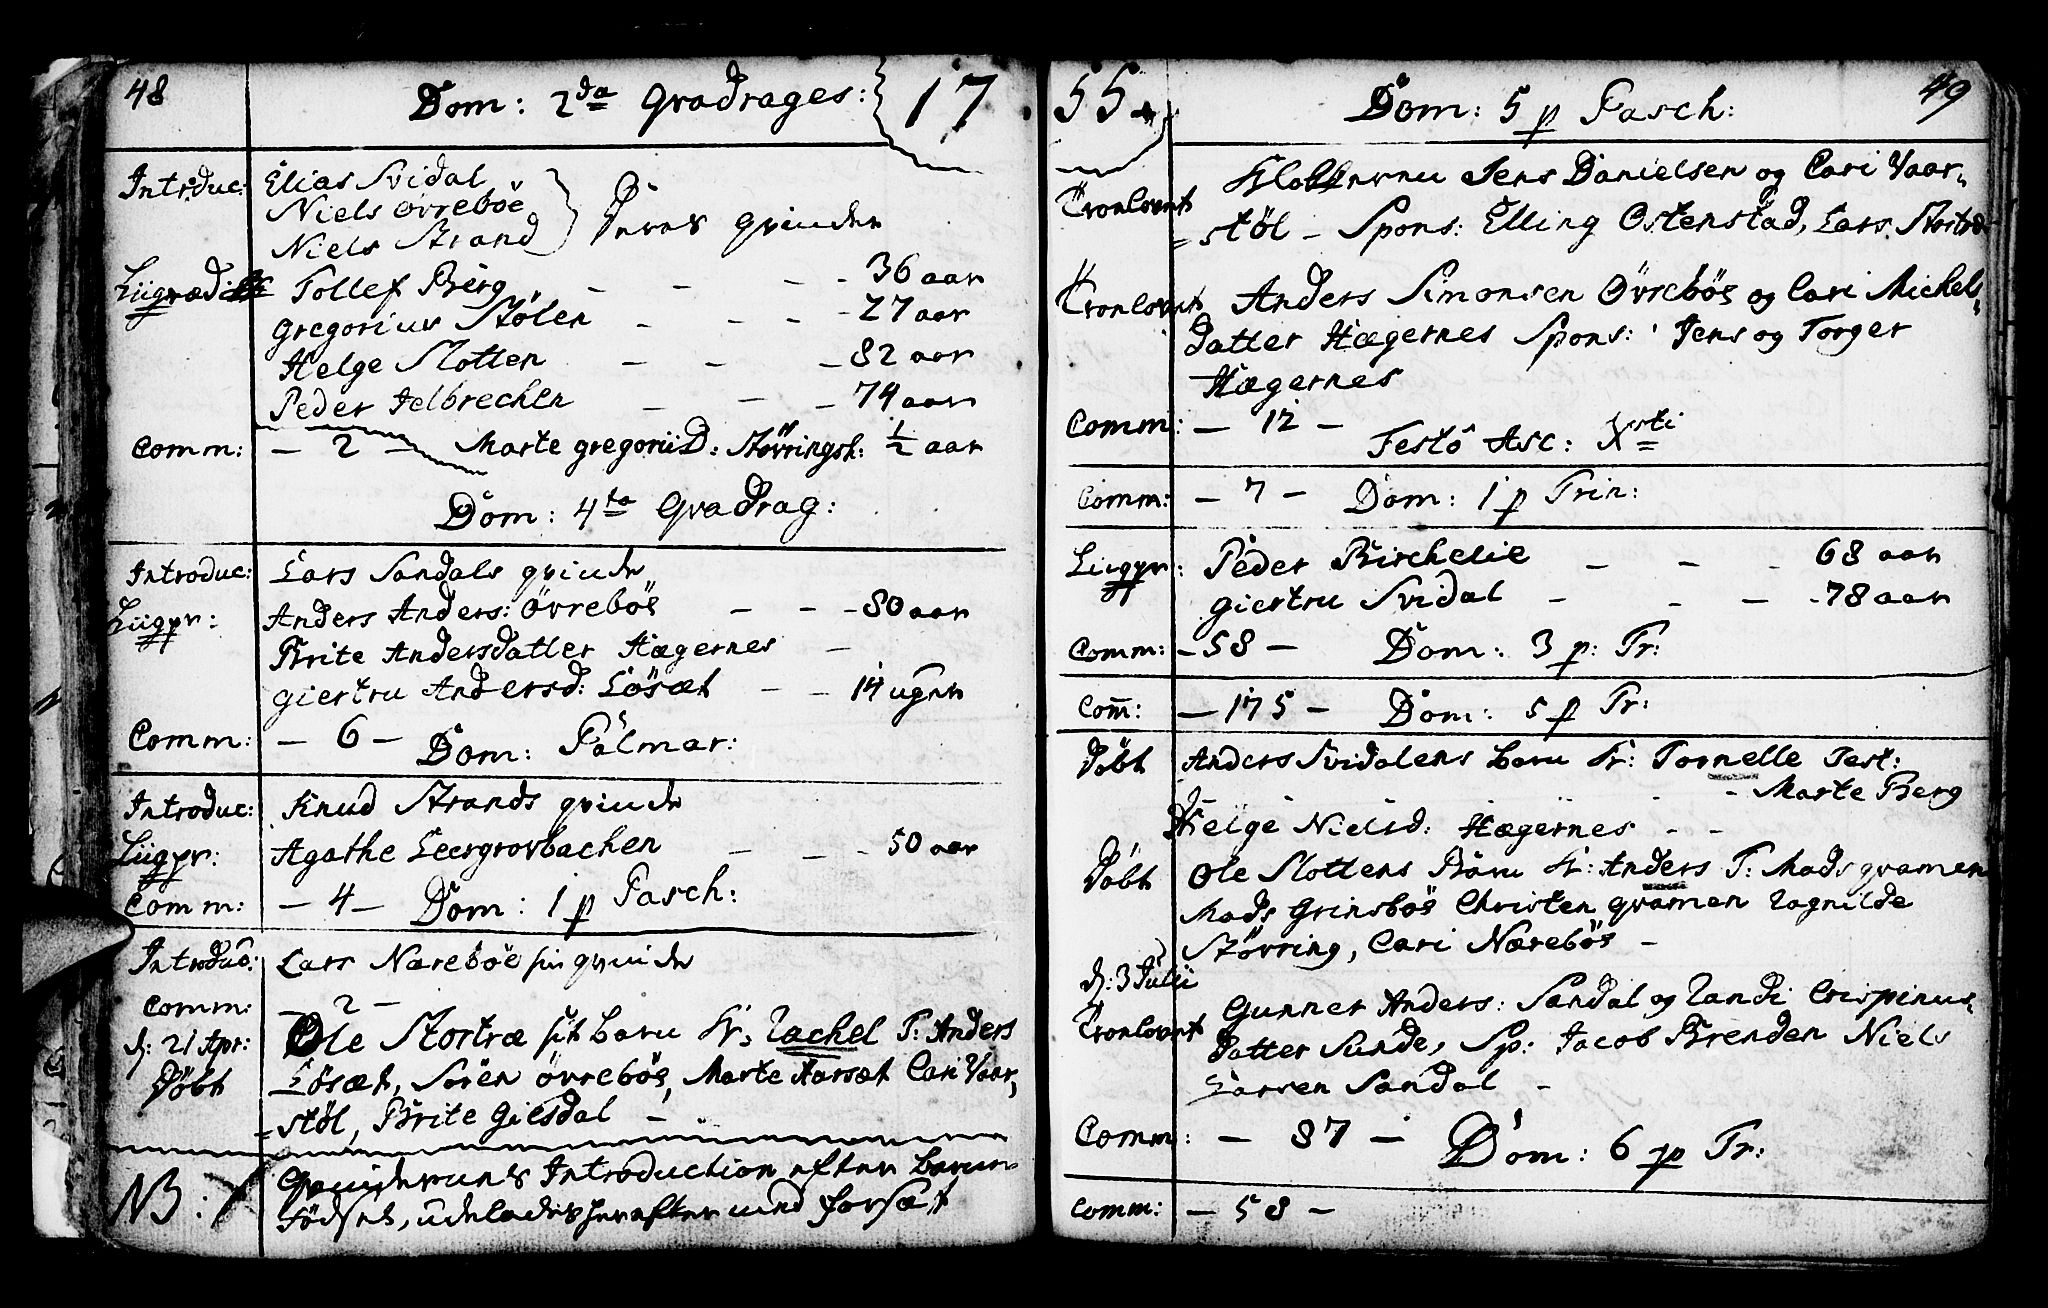 48
Dom: 2da Qvadrages: 17
Introduc: Elias Svidal
Niels Øvrebøe
Niels Strand } Deres qvinder
Liigpræd: Tollef Berg - - - 36 aar
Gregorius Stølen - - - 27 aar
Helge Slotten - - - 82 aar
Peder Helbrechen - - - 74 aar
Comm: - 2 - Marte gregoriiD: Støvringsh: 1/2 aar
Dom: 4ta Qvadrag:
Introduc: Lars Sandals qvinde
Liigpr: Anders Anders: Øvrebøe - - - 80 aar
Brite Andersdatter Hægernes -
Giertru Andersd: Løsæt - - 14 uger
Comm: - 6 - Dom: Palmar:
Introduc: Knud Strands qvinde
Liigpr: Agathe Leergrovbachen - - - 50 aar
Comm: - 4 - Dom: 1 p Pasch:
Introduc: Lars Nærebøe sin qvinde
Comm: - 2 -
d: 21 Apr: Døbt Ole Stortræ sit barn Kr: Rachel T: Anders
Løsæt, Søren Øvrebøe, Marte Aarsæt Cari Vaar,
=støl, Brite Giesdal -
NB: Qvindernes Introduction efter barn-
fødsel, udelades herefter med forsæt
55.
Dom: 5 p Pasch:
49
Tronlovet Klokkeren Jens Danielsen og Cari Vaar,
=støl - Spons: Elling Ostenstad, Lars Stortræ
Tronlovet Anders Simonsen Øvrebøe og Cari Michels
datter Hægernes Spons: Jens og Torger
Hægernes
Comm: - 12 -
Festo Asc: Xsti
Comm: - 7 - Dom: 1 p Trin:
Liigpr: Peder Birchelie - - - 68 aar
Giertru Svidal - - - 78 aar
Comm: - 58 - Dom: 3 p: Tr:
Com̄: - 175 - Dom: 5 p Tr:
Døbt Anders Svidalens barn Kr: Pornelle Test:
- - Marte Berg
Helge Nielsd: Hægernes - -
Døbt Ole Slottens Barn Kr: Anders T: Mads qvamen
Mads Grinsbøe Christen qvamen Ragnilde
Støvring, Cari Nærebøe -
d: 3 Julii
Tronlovet Gunner Anders: Sandal og Randi Crispinus,
datter Sunde, Sp: Jacob Brenden Niels
Larsen Sandal -
Comm: - 87 - Dom: 6 p Tr:
Comm: - 58 -